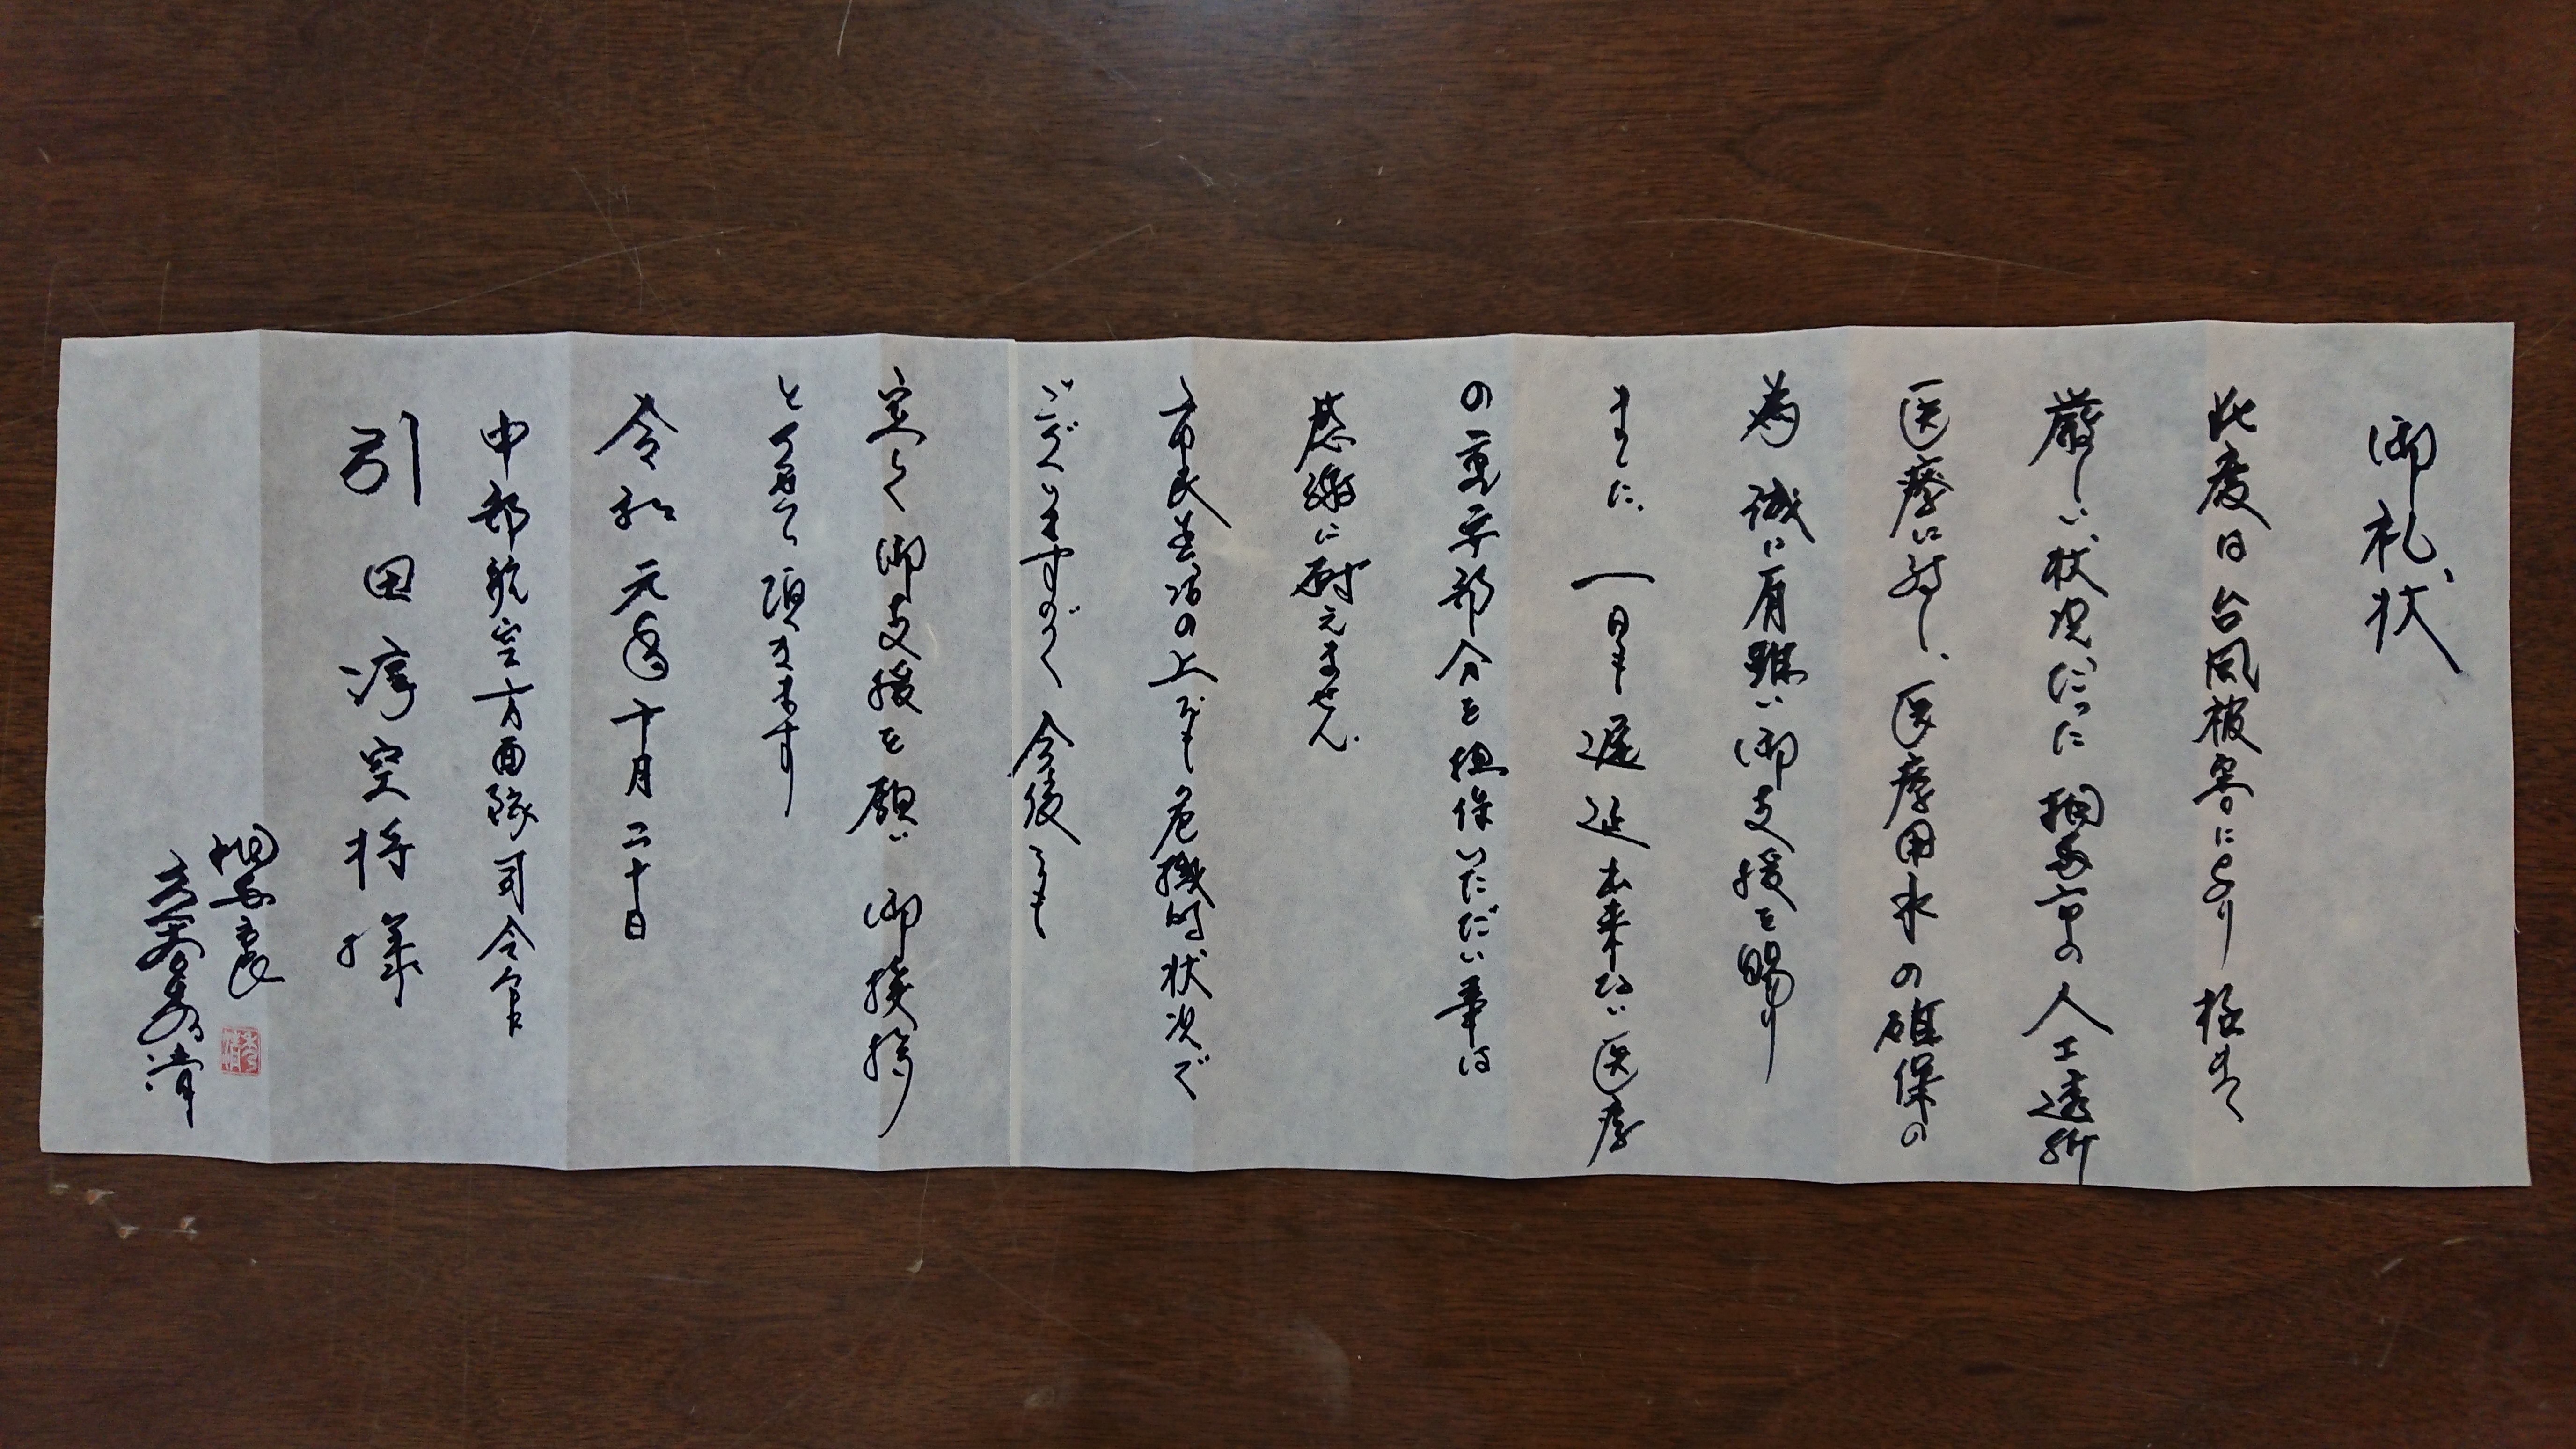 御礼状
此度は台風被害により極めて
厳しい状況だった相馬市の人工透析
医療に対し、医療用水の確保の
為誠に有難い御支援を賜り
ました。一日も遅延出来ない医療
の重要部分を担保いただい事は
感謝に耐えません。
市民生活の上でも危機的状況で
ございますがく今後とも
宜しく御支援を願い御挨拶
とさせて頂きます
令和元年十月二十日
中部航空方面隊司令官
引田淳空将様
相馬市長
立谷秀清